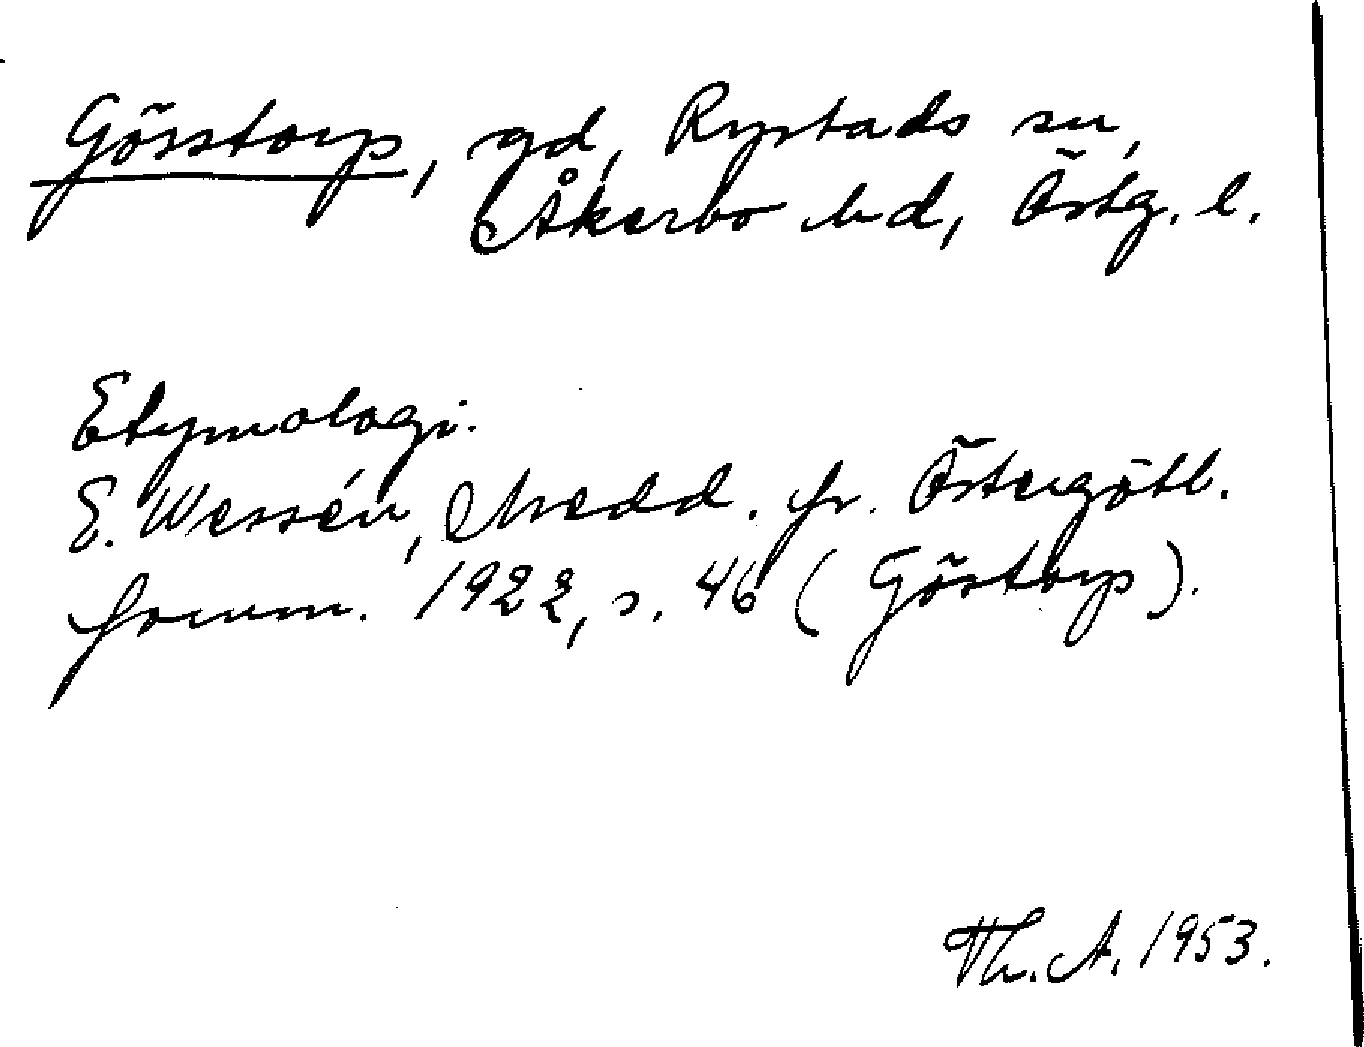 Gösstorp, gd, Rystads sn,
Åkerbo hd, Östg. l.
Etymologi.
E. Wessén, Medd. fr. Östergötl.
fornm. 1922, s. 46 (Göstorp).
Th. A. 1953.